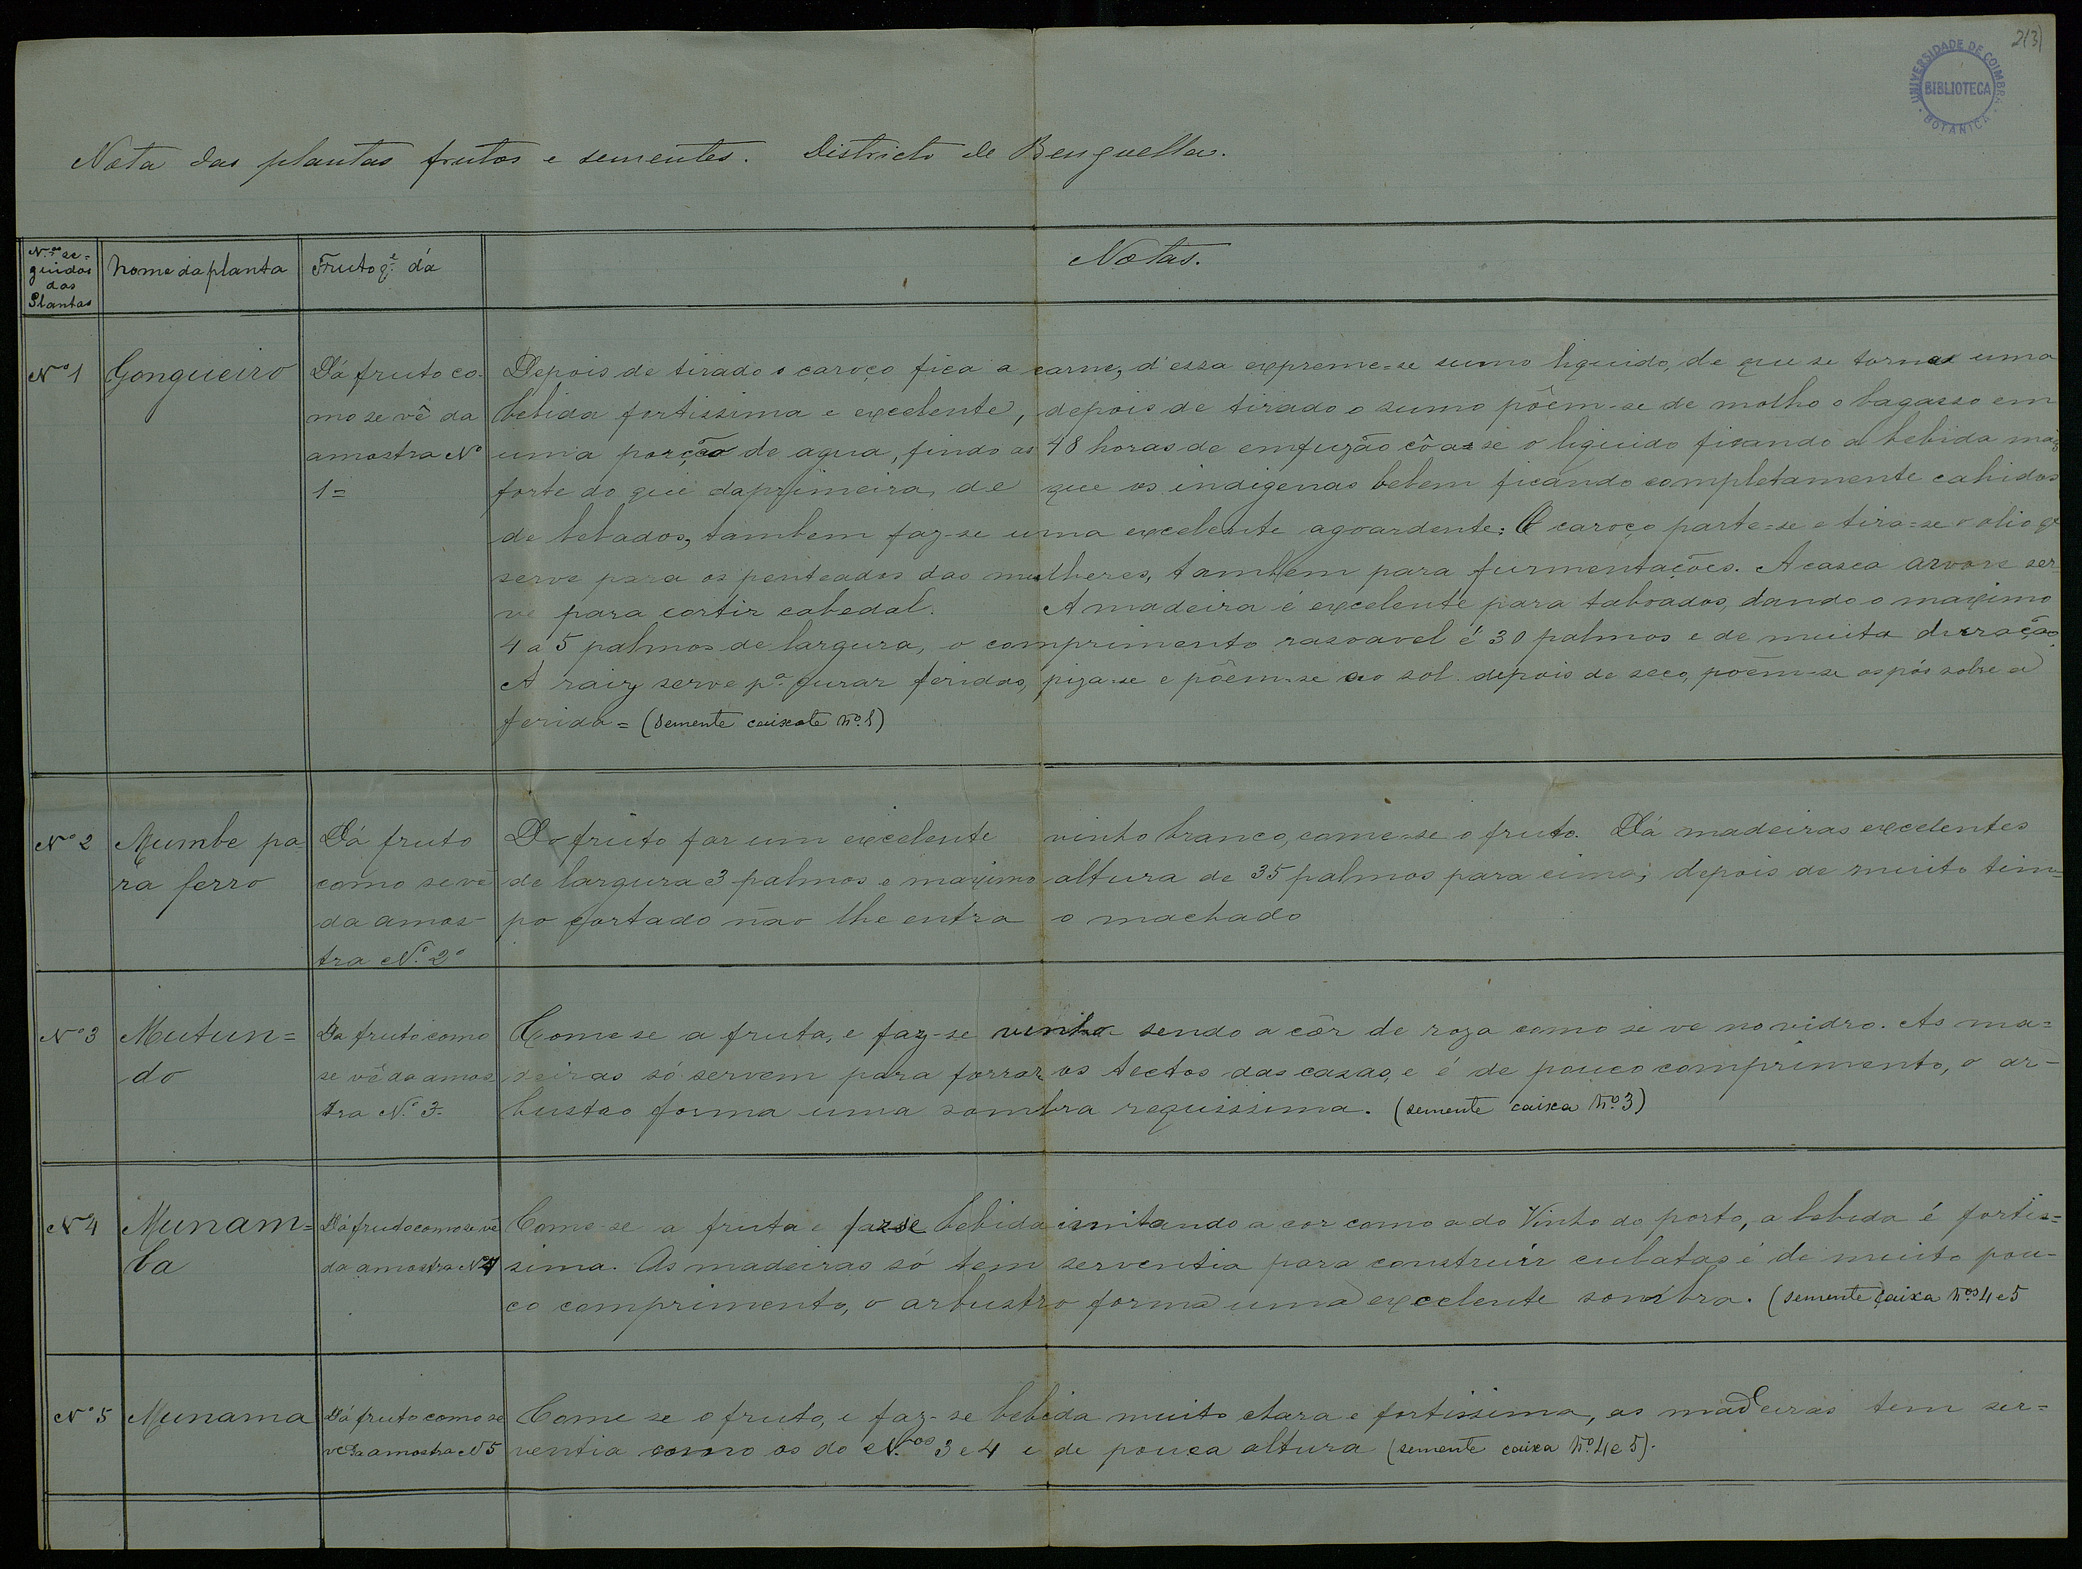 2(3)
UNIVERSIDADE DE COIMBRA
BIBLIOTECA
BOTANICA
Nota das plantas frutos e sementes. Districto de Benguella.
N.os se=
guidos
das
Plantas
Nome da planta
Fruto q.e dá
Notas.
Nº 1
Gongueiro
Dá fruto co-
mo se vê da
amostra Nº
1=
Depois de tirado o caroço fica a carne, d'essa expreme=se sumo liquido, de que se torna uma
bebida fortissima e excelente, depois de tirado o sumo põem-se de molho o bagasso em
uma porção de agua, findo as 48 horas de emfuzão côa=se o liquido ficando a bebida mais
forte do que da primeira, de que os indigenas bebem ficando completamente cahidos
de bebados, tambem faz-se uma excelente agoardente: O caroço parte=se e tira=se o olio q
serve para os penteados das mulheres, tambem para furmentações. A casca arvore ser=
ve para cortir cabedal. A madeira é excelente para taboados, dando o maximo
4 a 5 palmos de largura, o comprimento rasoavel é 30 palmos e de muita durração.
A raiz serve p.a curar feridas, piza-se e põem-se ao sol depois de seco, poêm-se os pós sobre a
ferida= (Semente caixote Nº.1)
Nº 2
Mumbe pa=
ra ferro
Dá fruto
como se vê
da amos-
tra Nº. 2º
Do fruto far um excelente vinho branco, come-se o fruto. Dá madeiras excelentes
de largura 3 palmos e maximo altura de 35 palmos para cima; depois de muito tem=
po cortado não lhe entra o machado
Nº 3
Mutun=
do
Da fruto como
se vê da amos
tra Nº. 3=
Come se a fruta, e faz-se vinho sendo a côr de roza como se ve no vidro. As ma=
deiras só servem para forrar os tectos das casas, e é de pouco comprimento, o ar-
bustao forma uma sombra requissima. (semente caixa Nº.3)
Nº 4
Munam=
ba
Dá fruto como se vê
da amostra Nº4
Come-se a fruta e faz se bebida imitando a cor como a do Vinho do porto, a bebida é fortis=
sima. As madeiras só tem serventia para construir cubatas é de muito pou-
co comprimento, o arbustro forma uma excelente sombra. (semente caixa Nos 4 e 5
Nº 5
Munama
Dá fruto como se
ve da amostra Nº5
Come se o fruto, e faz-se bebida muito clara e fortissima, as madeiras tem ser=
ventia como as do N.os 3 e 4 e de pouca altura (semente caixa Nº.4 e 5).